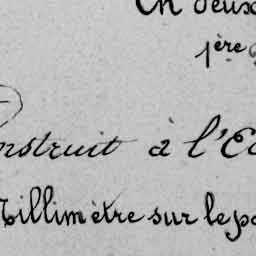 En deux
1ère
Construit à l'Ec
Millimètre sur le po